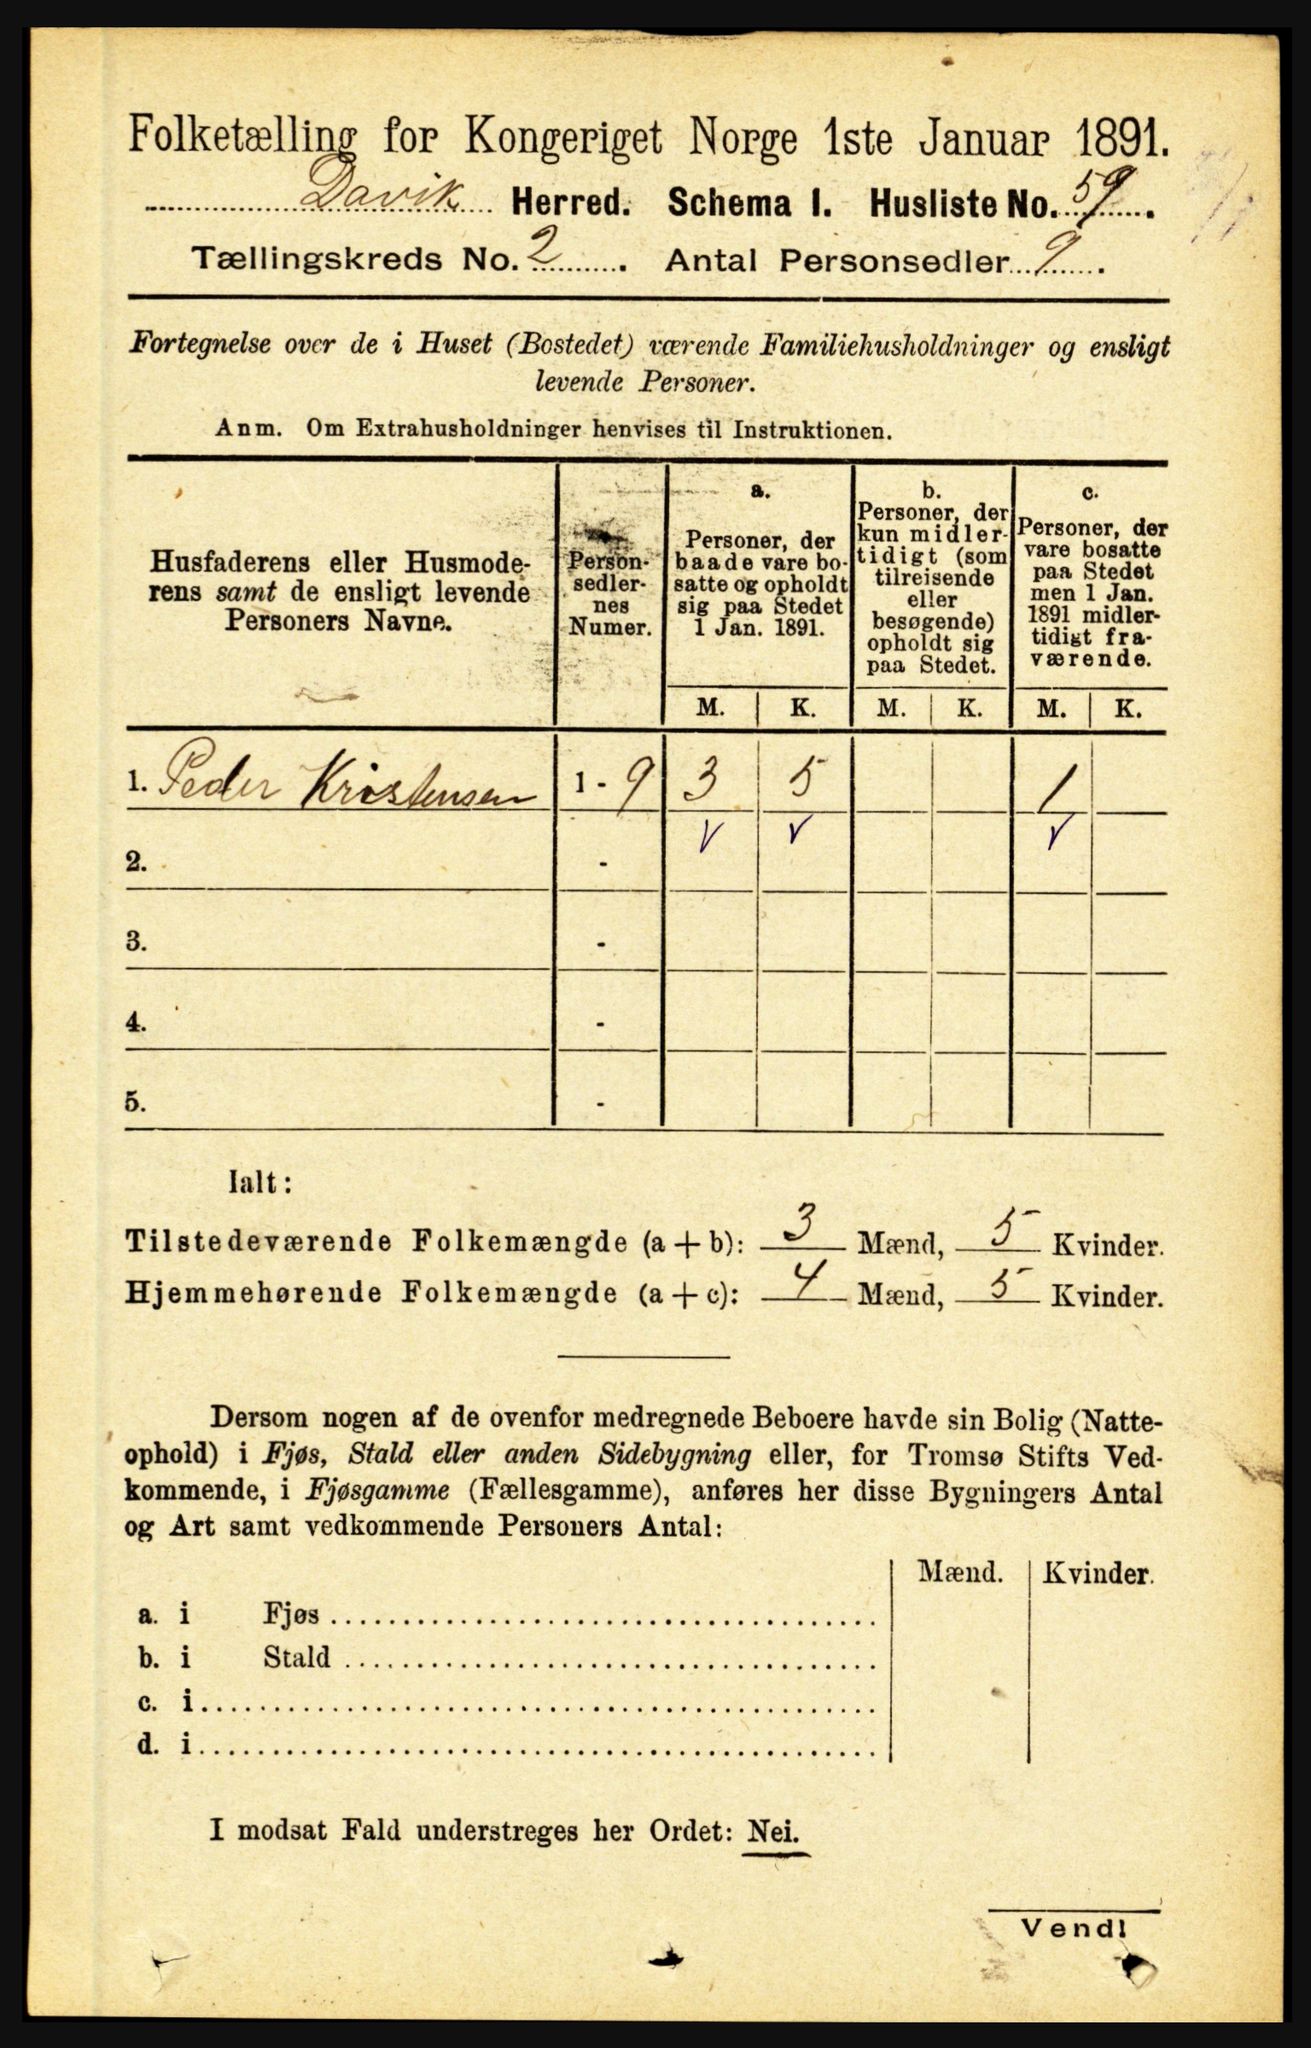 Folketælling for Kongeriget Norge 1ste Januar 1891.
Davik Herred. Schema I. Husliste No. 59.
Tællingskreds No. 2. Antal Personsedler 9.
Fortegnelse over de i Huset (Bostedet) værende Familiehusholdninger og ensligt
levende Personer.
Anm. Om Extrahusholdninger henvises til Instruktionen.
Husfaderens eller Husmode-
rens samt de ensligt levende
Personers Navne.
Person-
sedler-
nes
Numer.
a.
Personer, der
baade vare bo-
satte og opholdt
sig paa Stedet
1 Jan. 1891.
b.
Personer, der
kun midler-
tidigt (som
tilreisende
eller
besøgende)
opholdt sig
paa Stedet.
c.
Personer, der
vare bosatte
paa Stedet
men 1 Jan.
1891 midler-
tidigt fra-
værende.
M. K. M. K. M. K.
1. Peder Kristensen 1 - 9 3 5 1
2. - v v v
3. -
4. -
5. -
Ialt:
Tilstedeværende Folkemængde (a + b): 3 Mænd, 5 Kvinder.
Hjemmehørende Folkemængde (a + c): 4 Mænd, 5 Kvinder.
Dersom nogen af de ovenfor medregnede Beboere havde sin Bolig (Natte-
ophold) i Fjøs, Stald eller anden Sidebygning eller, for Tromsø Stifts Ved-
kommende, i Fjøsgamme (Fællesgamme), anføres her disse Bygningers Antal
og Art samt vedkommende Personers Antal:
Mænd. Kvinder.
a. i Fjøs
b. i Stald
c. i
d. i
I modsat Fald understreges her Ordet: Nei.
Vend!